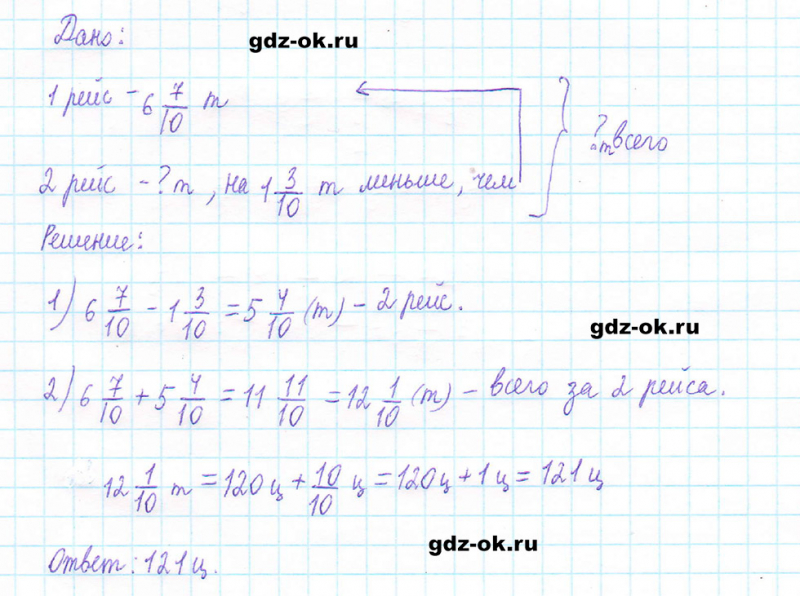 Дано:
gdz-ok.ru
1 рейс - 6 7/10 т
2 рейс - ? т, на 1 3/10 т меньше, чем
? т всего
Решение:
1) 6 7/10 - 1 3/10 = 5 4/10 (т) - 2 рейс.
gdz-ok.ru
2) 6 7/10 + 5 4/10 = 11 11/10 = 12 1/10 (т) - всего за 2 рейса.
12 1/10 т = 120 ц + 10/10 ц = 120 ц + 1 ц = 121 ц
gdz-ok.ru
Ответ: 121 ц.